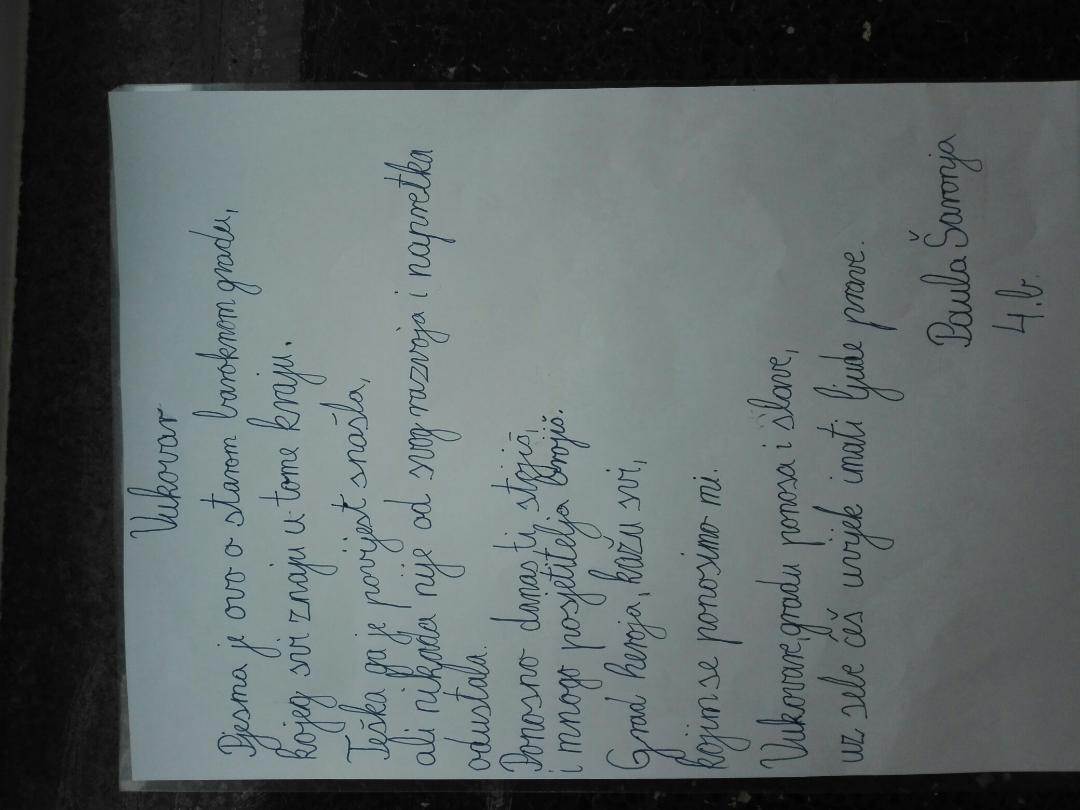 Vukovar
Pjesma je ovo o starom baroknom gradu,
kojeg svi znaju u tome kraju.
Teška ga je povijest snašla,
ali nikada nije od svog razvoja i napretka
odustala.
Ponosno danas ti stojiš,
i mnogo posjetitelja brojiš.
Grad heroja, kažu svi,
kojim se ponosimo mi.
Vukovare, gradu ponosa i slave,
uz sebe ćeš uvijek imati ljude prave.
Paula Šaronja
4.b.